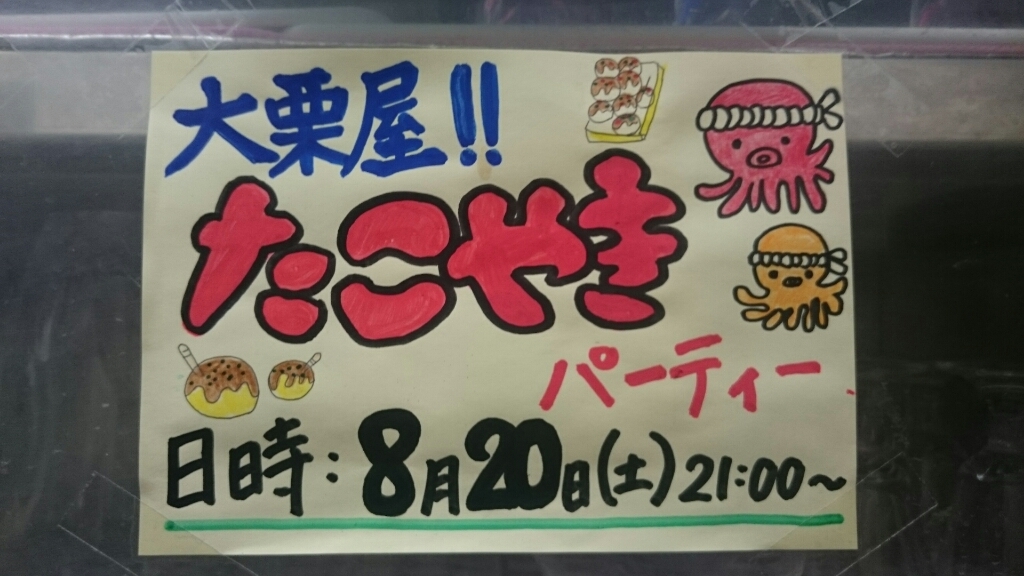 大栗屋!!
たこやき
パーティー
日時:8月20日(土)21:00~